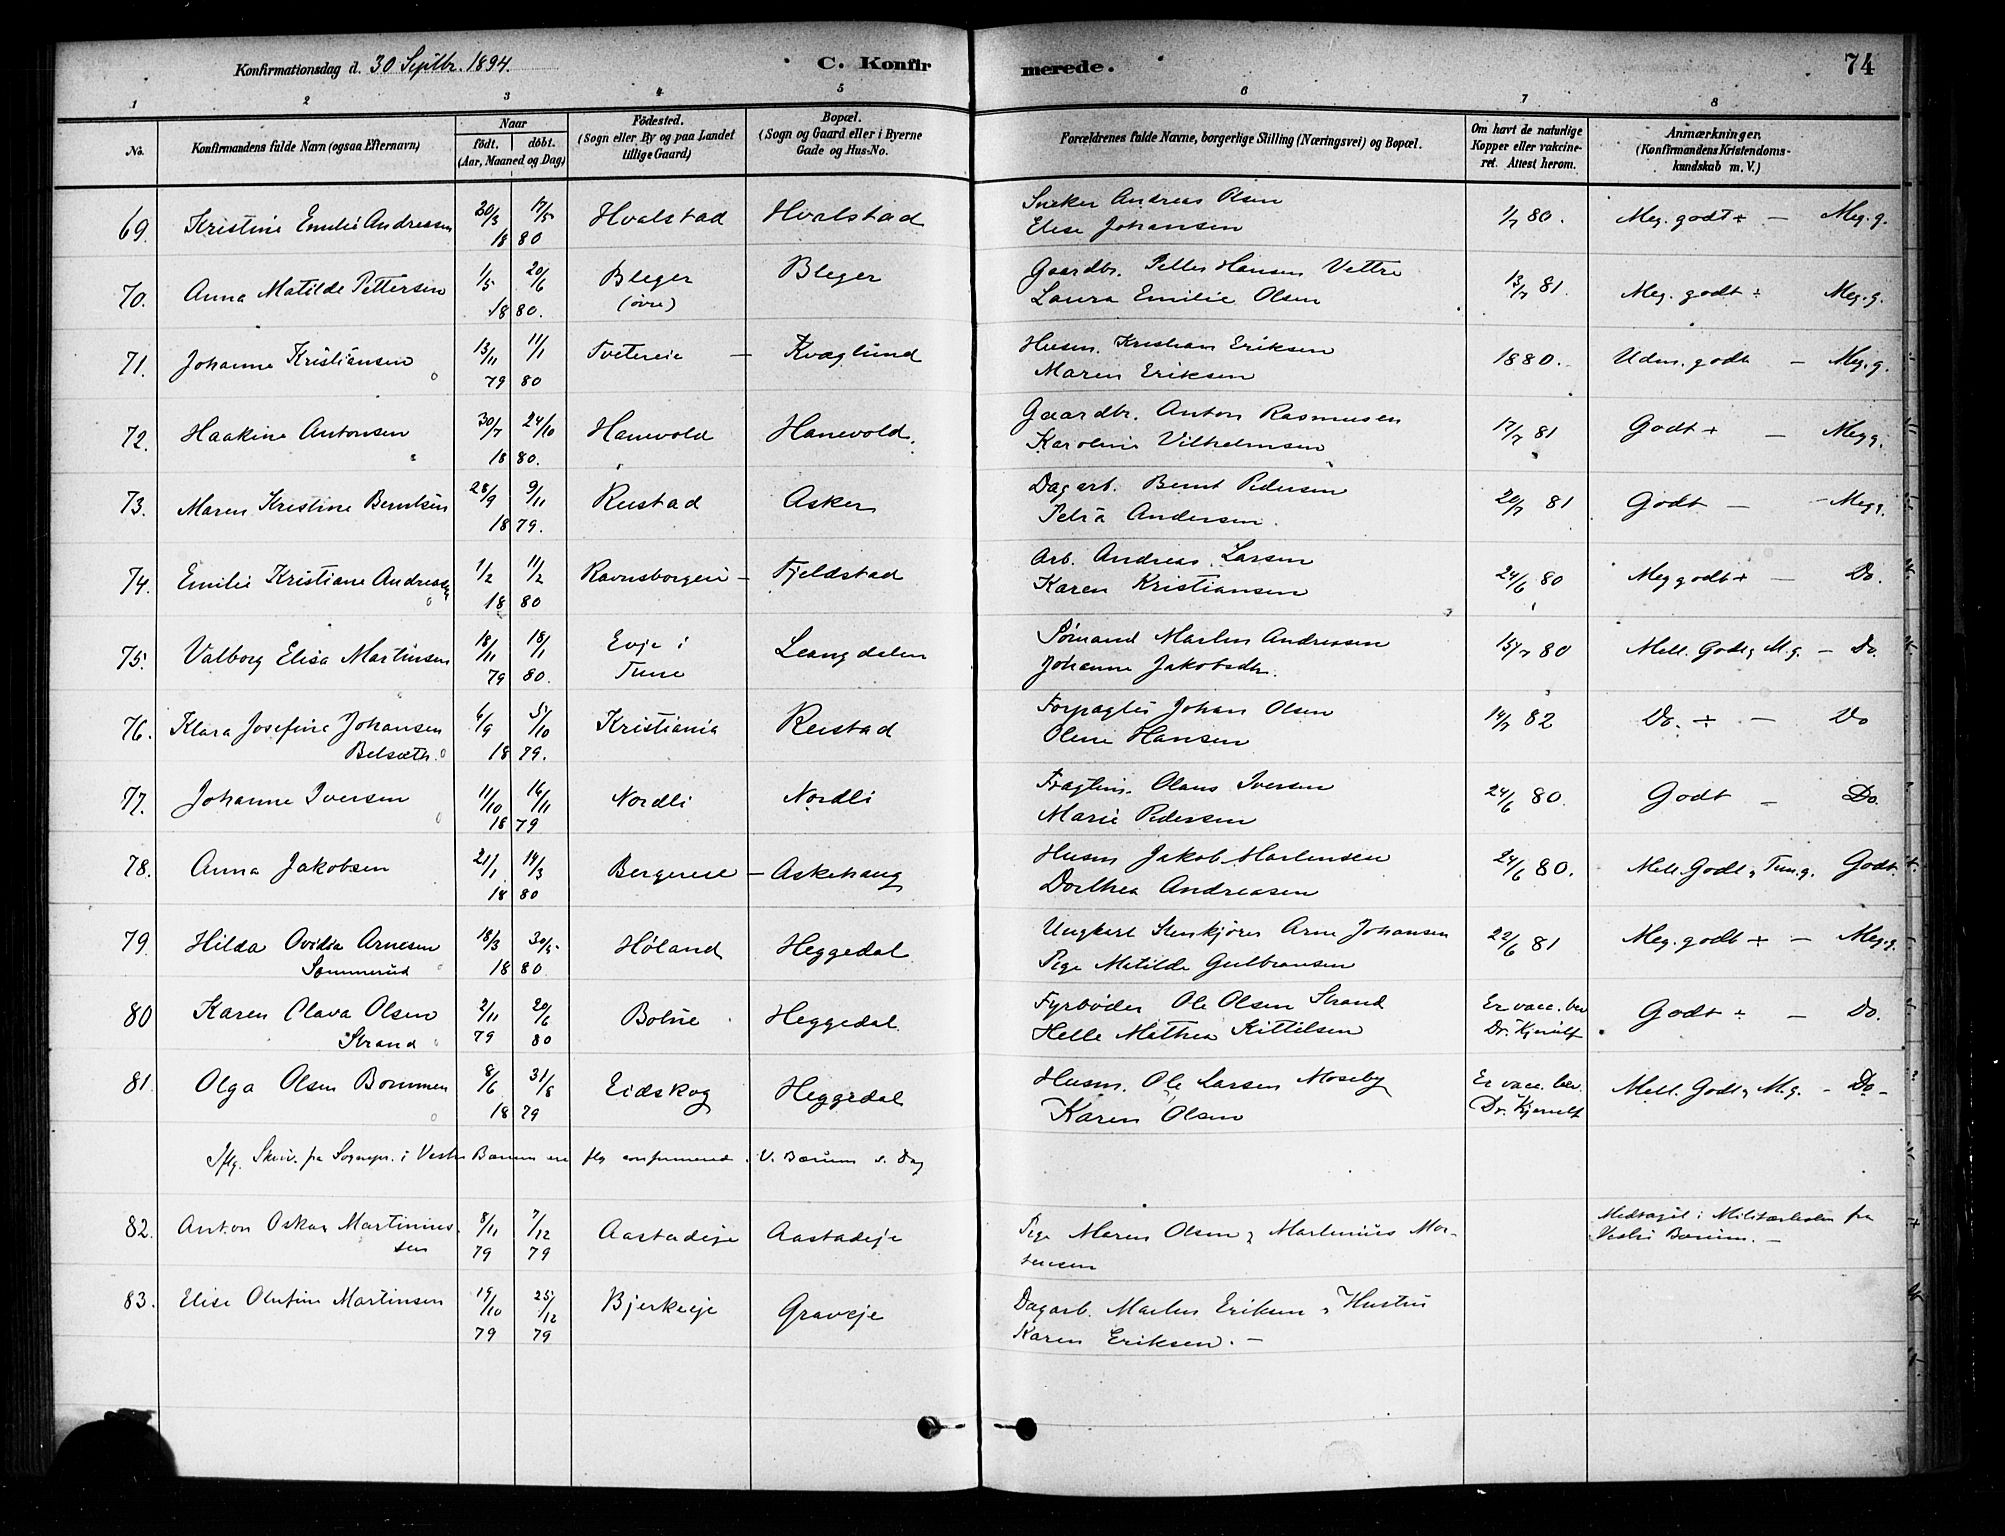 Konfirmationsdag d. 30 Septbr. 1894. C. Konfirmerede. 74
1 2 3 4 5 6 7 8
No. Konfirmandens fulde Navn (ogsaa Efternavn) Naar født. døbt. (Aar, Maaned og Dag) Fødested. (Sogn eller By og paa Landet tillige Gaard) Bopæl. (Sogn og Gaard eller i Byerne Gade og Hus-No. Forældrenes fulde Navne, borgerlige Stilling (Næringsvei) og Bopæl. Om havt de naturlige Kopper eller vakcineret. Attest herom. Anmærkninger. (Konfirmandens Kristendomskundskab m. V.)
69. Kristine Emilie Andressen 20/3 17/5 1880 Hvalstad Hvalstad Andreas Olsen
Elise Johansen 1/7 80. Meg. godt + — Meg. g.
70. Anna Matilde Pettersen 1/5 20/6 1880. Bleger (øvre) Bleger Gaardbr. Petter Hansen Vettre
Laura Emilie Olsen 13/7 81. Meg. godt ÷ Meg. g.
71. Johanne Kristiansen 13/11 79 11/1 80 Tvetereie — Kvaglund Husm. Kristian Eriksen
Maren Eriksen 1880. Udm. godt — Meg. g.
72. Haakine Antonsen 30/7 24/10 1880. Hanevold Hanevold. Gaardbr. Anton Rasmussen
Karoline Vilhelmsen 17/7 81 Godt + — Meg g.
73. Maren Kristine Berntsen 28/9 9/11 1879. Reistad Asker Dagarb. Bernt Pedersen
Petra Andersen. 20/7 81 Godt — — Meg g.
74. Emilie Kristiane Andreas 1/2 11/2 1880 Ravnsborgeie — Fjeldstad Arb. Andreas Larsen
Karen Kristiansen 24/6 80 Meg godt + — Do.
75. Valborg Elisa Martinsen 18/11 79 18/1 80. Evje i Tune Leangdalen Sømand Martin Andreasen
Johanne Jakobsdtr. 15/7 80 Mell. Godt & M. g. — Do.
76. Klara Josefine Johansen Belsæth. 6/9 5/10 1879. Kristiania Reistad Forpagter Johan Olsen
Oline Hansen 14/7 82 Do. ÷ — Do
77. Johanne Iversen 11/10 16/11 1879 Nordli Nordli Olaus Iversen
Marie Pedersen 24/6 80. Godt — Do.
78. Anna Jakobsen 21/1 14/3 1880 Bergereie — Askehaug Husm Jakob Martinsen
Dorthea Andreasen 24/6 80. Mell. Godt & Tem. g. Godt.
79. Hilda Ovidia Arnesen Sommerud 18/3 30/5 1880. Høland Heggedal Ungkarl Stenkjører Arne Johansen
Pige Matilde Gulbransen 22/6 81 Meg. godt + — Meg. g.
80 Karen Olava Olsen Strand 2/11 79 20/6 80 Botne Heggedal. Fyrbøder Ole Olsen Strand
Helle Mathea Kittilsen Er vacc. bev. Dr. Kjerulf Godt ÷ — Do.
81. Olga Olsen Bommen 8/6 31/8 1879 Eidskog Heggedal Husm. Ole Larsen Moseby
Karen Olsen Er vacc. bev. Dr. Kjerulf Mell. Godt & M. g. — Do —
Iflg. Skriv. fra Sognepr. i Vestre Bærum er flg confirmered i V. Bærum s. Dag
82. Anton Oskar Martiniussen 8/11 79 7/12 79 Aastadeje Aastadeje Pige Maren Olsen & Martinius Mortensen Medtaget i Militærlisten fra Vestre Bærum. —
83. Elise Olufine Martinsen 19/10 79 25/12 79 Bjerkeeje Graveje Dagarb. Martin Eriksen & Hustru
Karen Eriksen. —